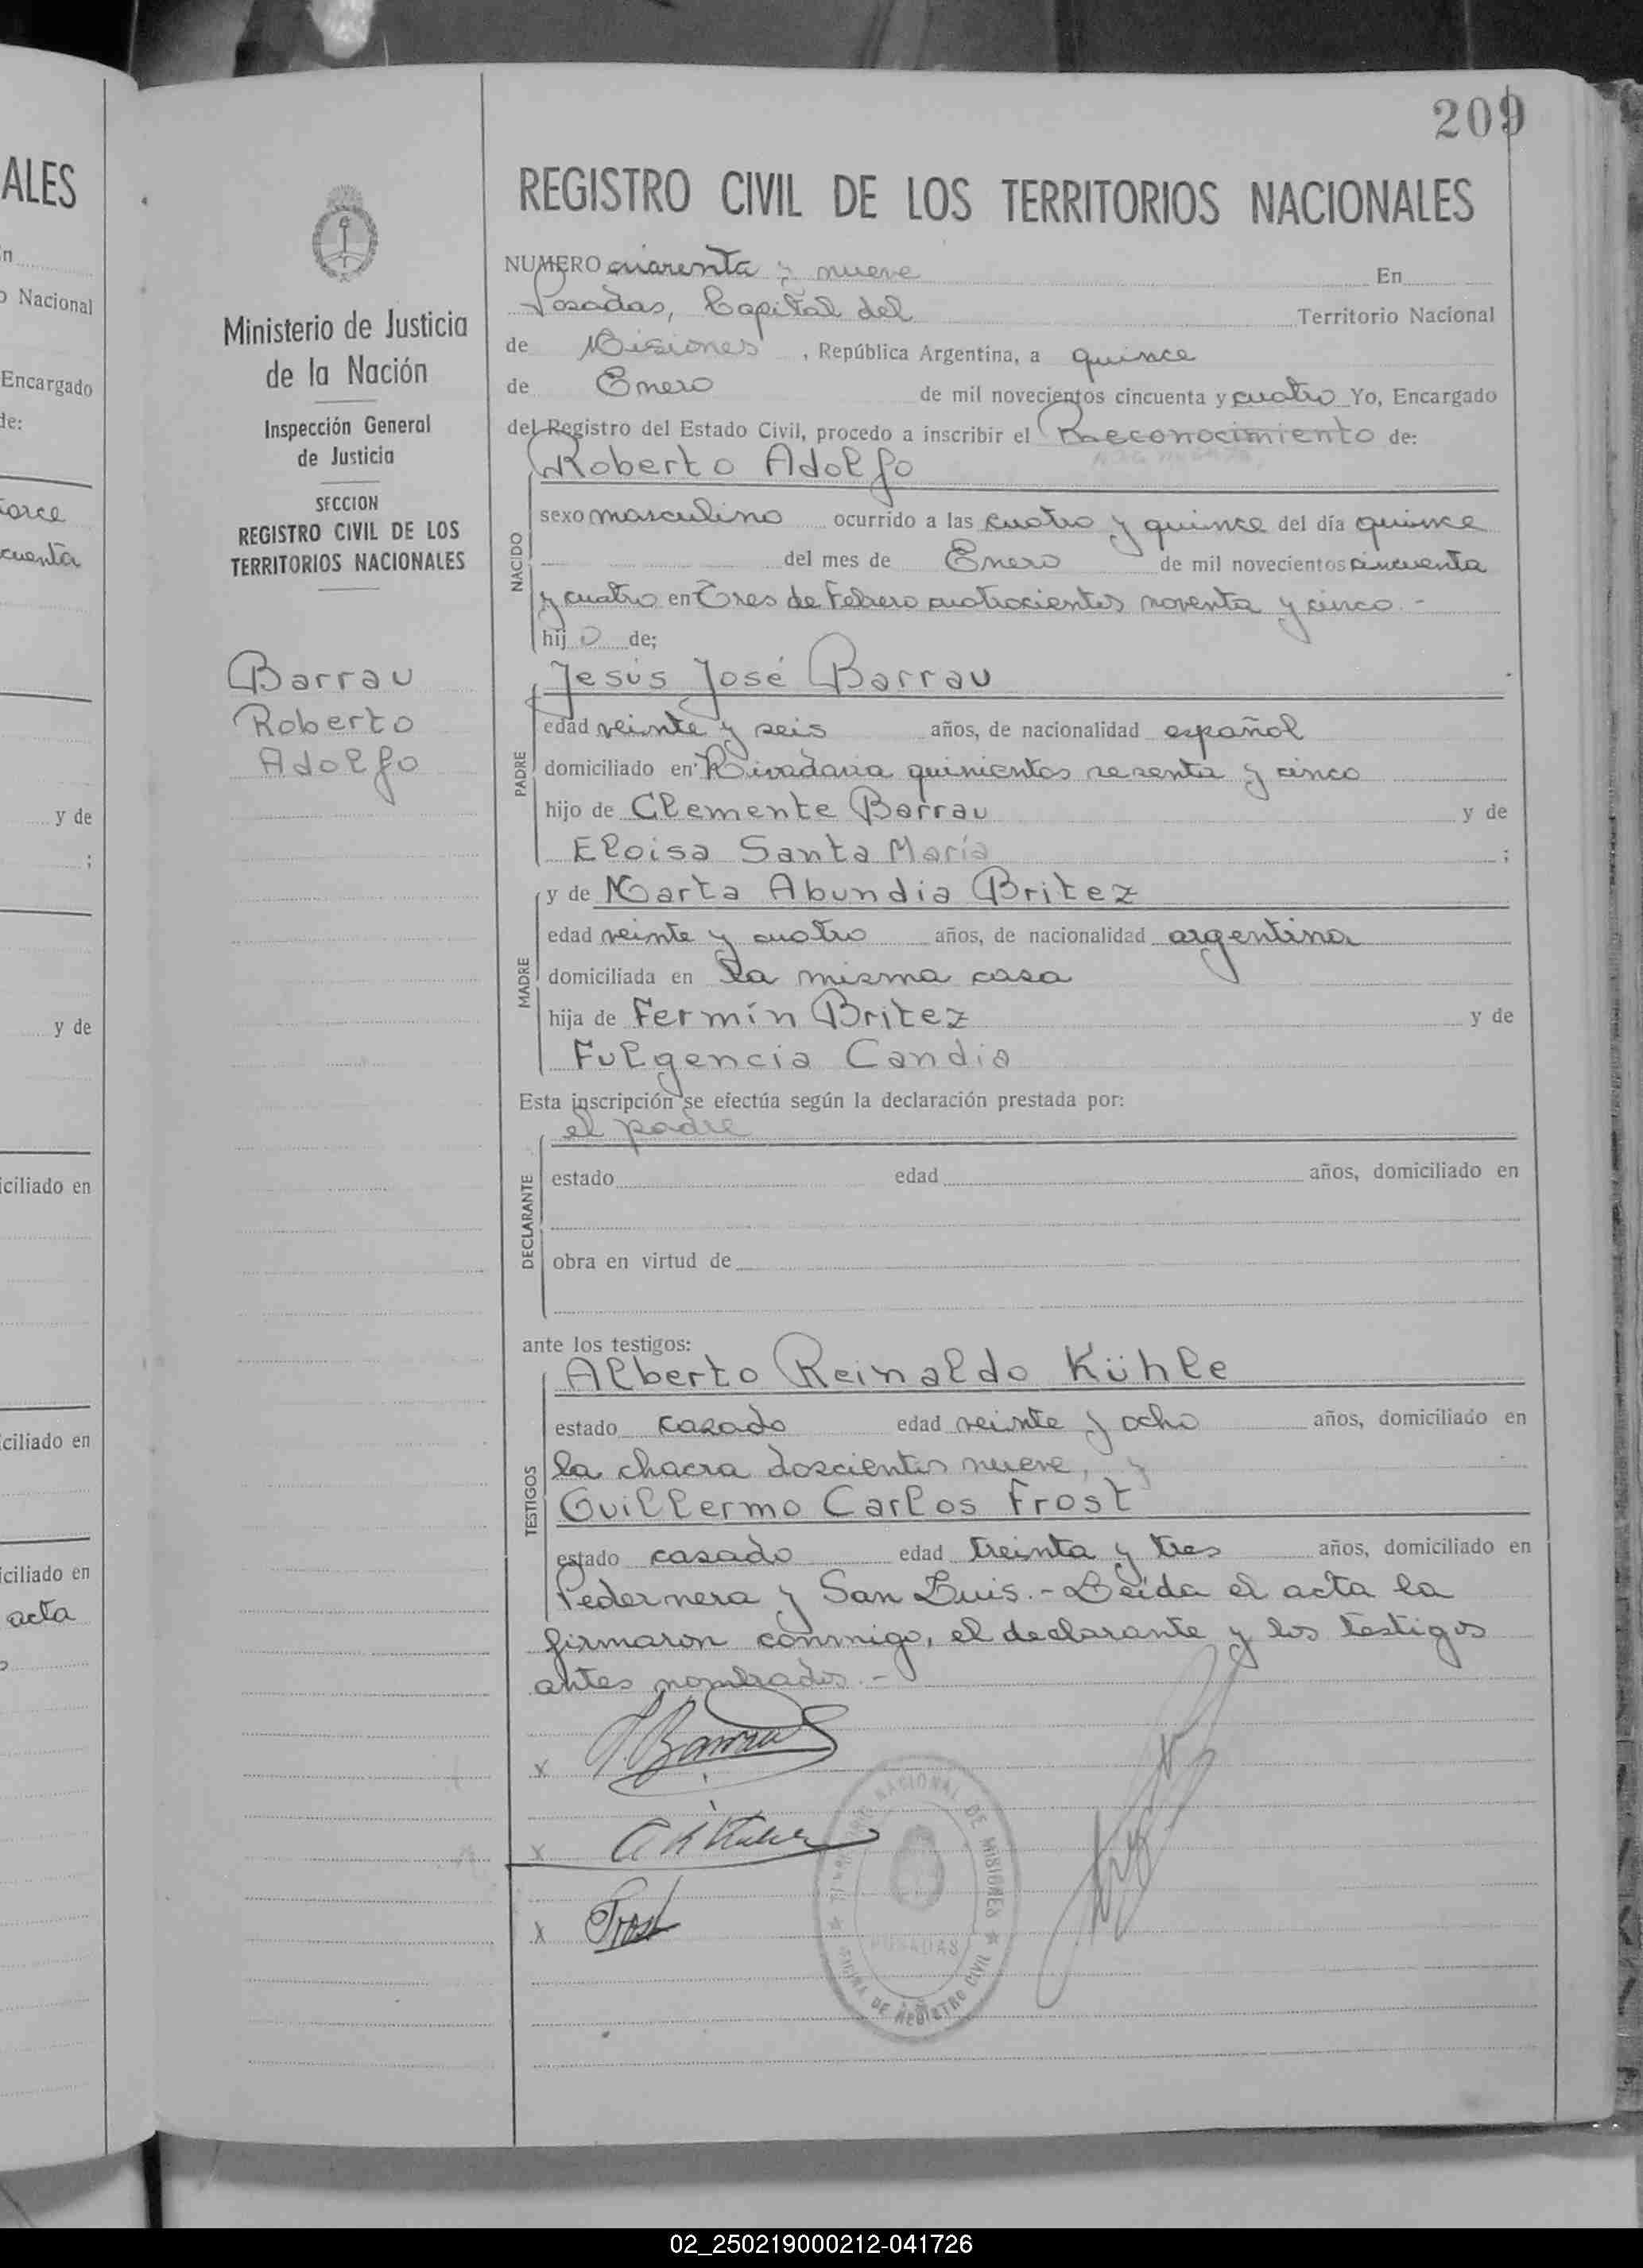 209
ALES
n
o Nacional
Encargado
de:
orce
cuenta
y de
;
y de
iciliado en
ciliado en
ciliado en
acta
Ministerio de Justicia
de la Nación
Inspección General
de Justicia
SECCION
REGISTRO CIVIL DE LOS
TERRITORIOS NACIONALES
Barrau
Roberto
Adolfo
REGISTRO CIVIL DE LOS TERRITORIOS NACIONALES
NUMERO cuarenta y nueve En
Posadas, Capital del Territorio Nacional
de Misiones, República Argentina, a quince
de Enero de mil novecientos cincuenta y cuatro Yo, Encargado
del Registro del Estado Civil, procedo a inscribir el Reconocimiento de:
Roberto Adolfo
NACIDO
sexo masculino ocurrido a las cuatro y quince del día quince
del mes de Enero de mil novecientos cincuenta
y cuatro en Tres de Febrero cuatrocientos noventa y cinco.-
hijo de;
Jesús José Barrau
PADRE
edad veinte y seis años, de nacionalidad español
domiciliado en Rivadavia quinientos sesenta y cinco
hijo de Clemente Barrau y de
Eloisa Santa María ;
y de Marta Abundia Britez
MADRE
edad veinte y cuatro años, de nacionalidad argentina
domiciliada en la misma casa
hija de Fermín Britez y de
Fulgencia Candia
Esta inscripción se efectúa según la declaración prestada por:
el padre
DECLARANTE
estado edad años, domiciliado en
obra en virtud de
ante los testigos:
Alberto Reinaldo Kühle
TESTIGOS
estado casado edad veinte y ocho años, domiciliado en
la chacra doscientos nueve, y
Guillermo Carlos Frost
estado casado edad treinta y tres años, domiciliado en
Pedernera y San Luis.- Leída el acta la
firmaron conmigo, el declarante y los testigos
antes nombrados.-
x J. Barrau
x
x Frost
NACIONAL DE MISIONES
POSADAS
OFICINA DE REGISTRO CIVIL
02_250219000212-041726